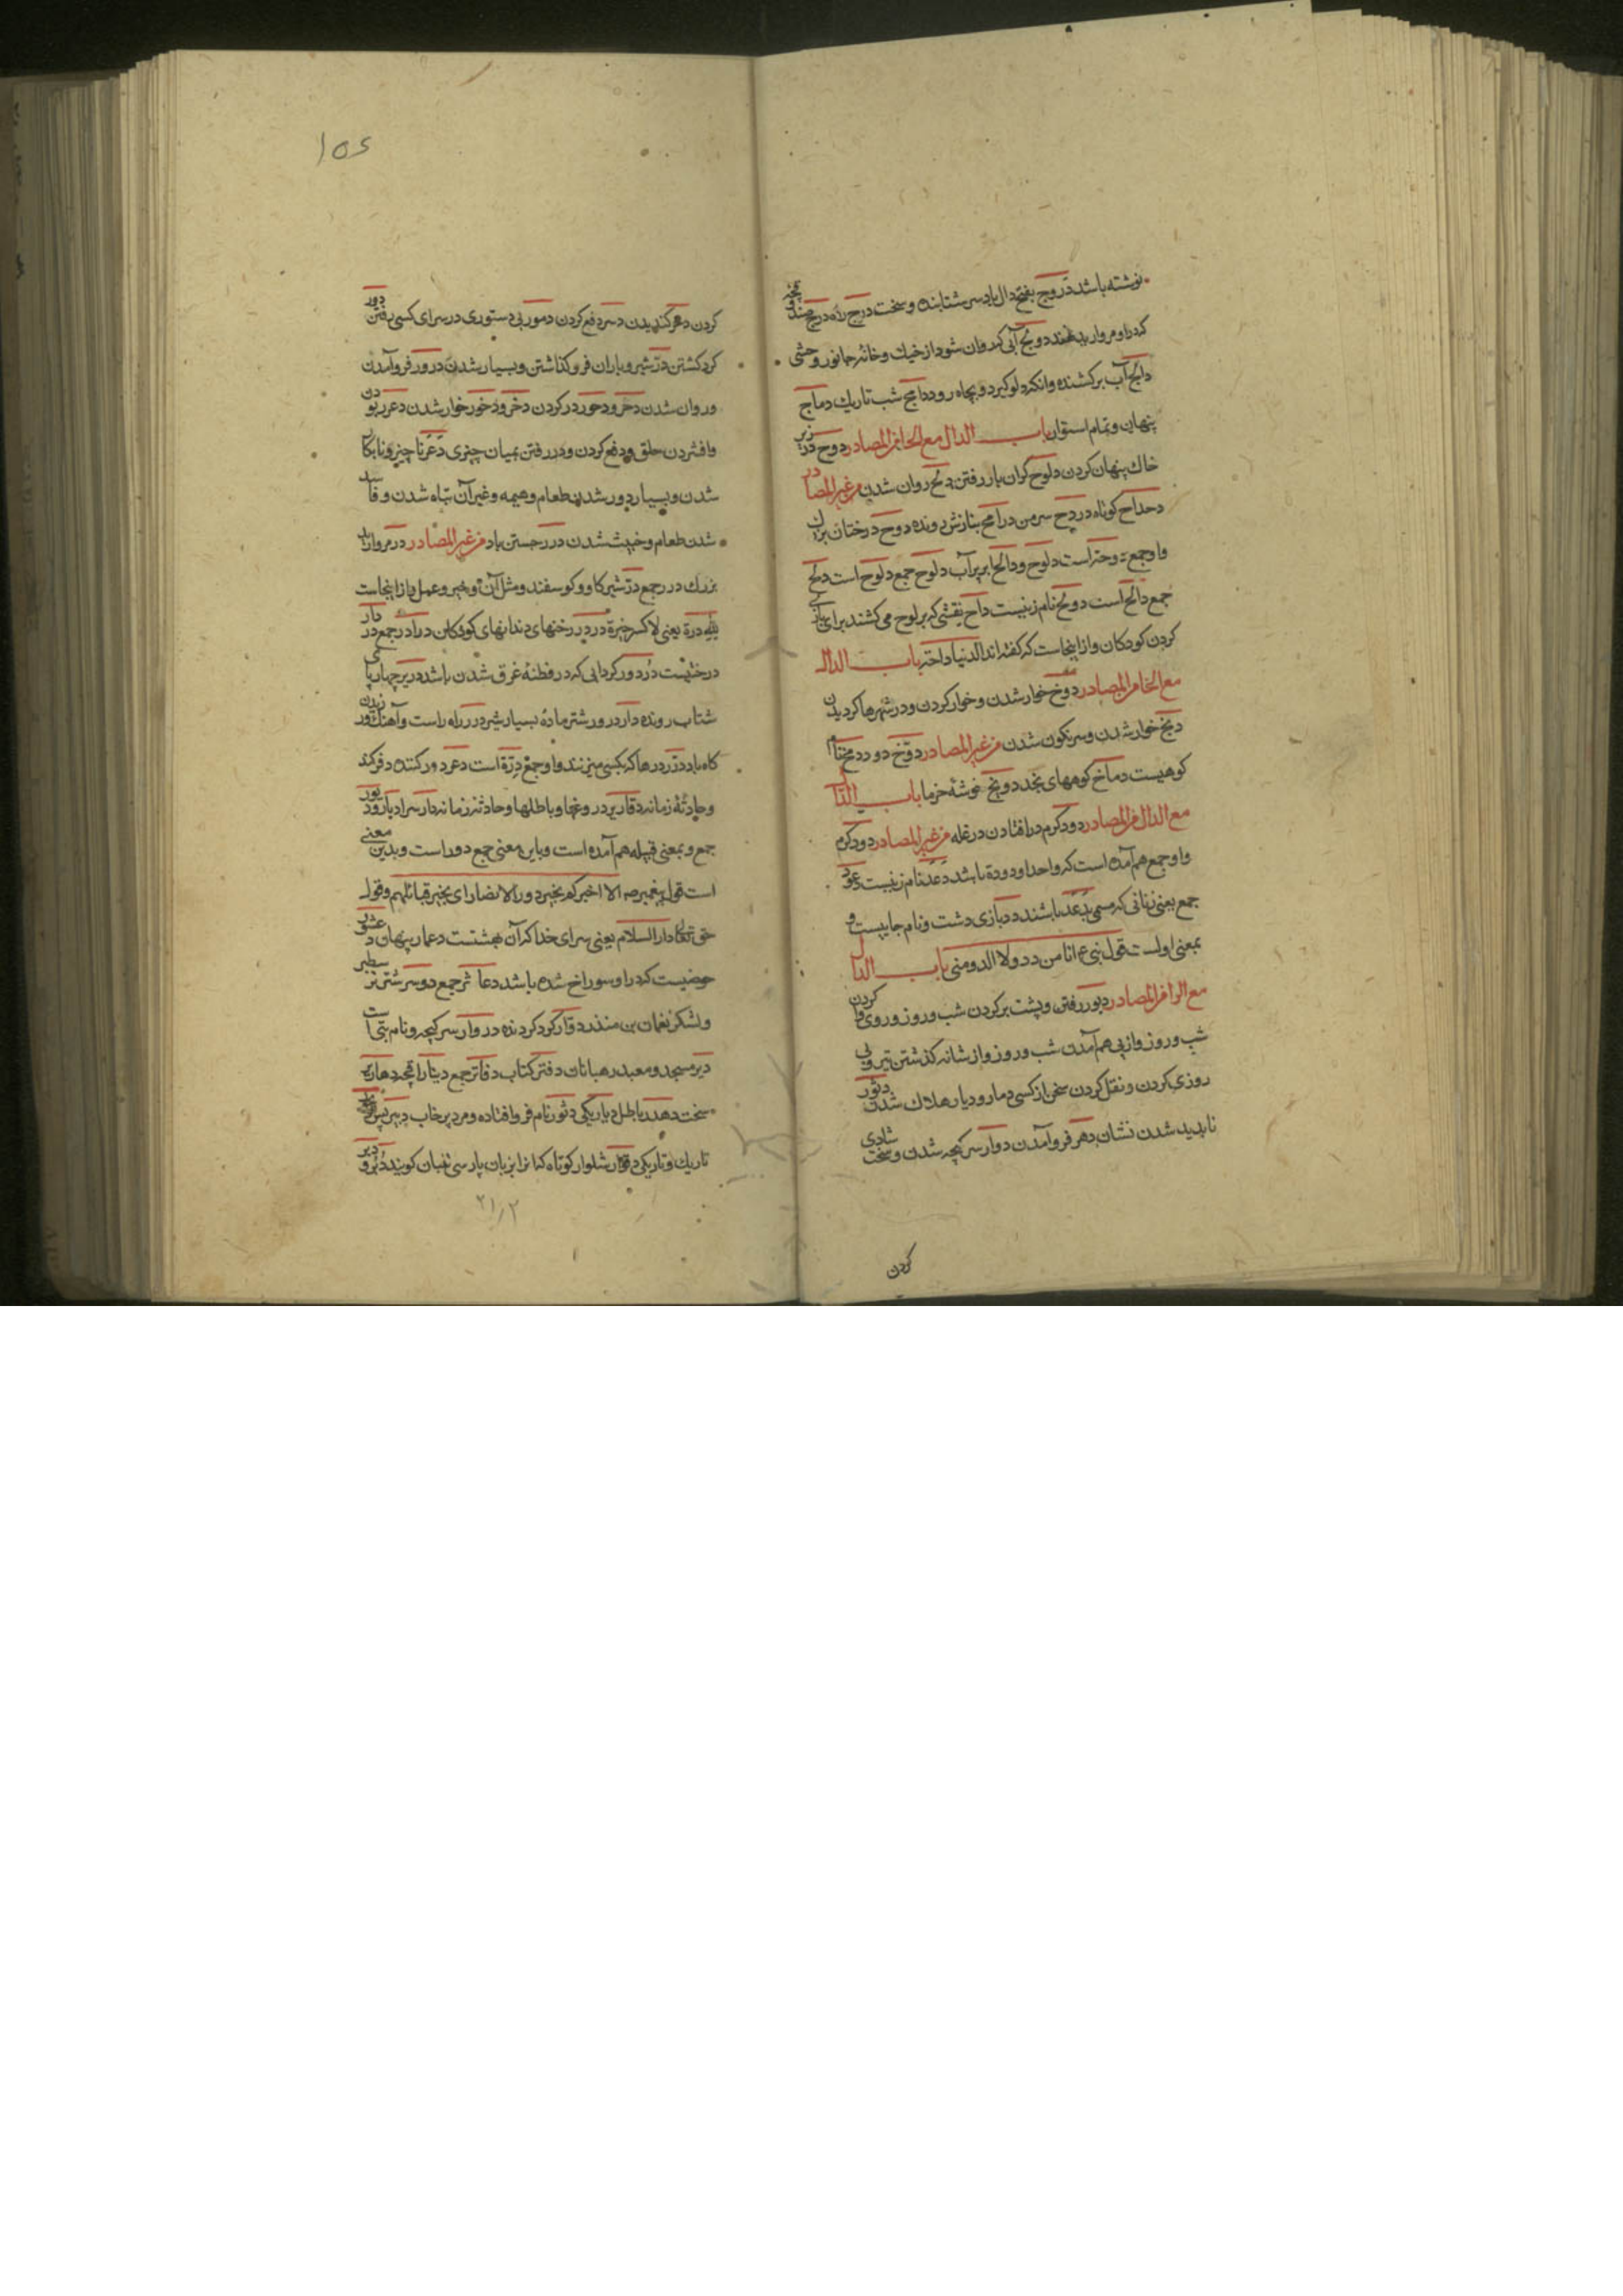 نوشته باشد دروج بفتح دال باد سر شتابنده و سخت درج راه درج صندوقچه
که در او مروارید نهند دولج آبی که روان شود از خیك و خانهٔ جانور وحشی
دالج آب برکشنده و انکه دلو کیرد و بچاه رود دامج شب تاریك دماج
پنهان و تمام استوار باب الدال مع الحا من المصادر دوح در زیر
خاك پنهان کردن دلوح کران بار رفتن دلح روان شدن من غیر المصادر
دحداح کوتاه دردح سر من درامح بنازش رونده دوح درختان بزرك
واو جمع دوحة است دلوح و دالح ابر پر آب دلوح جمع دلوح است دلح
جمع دالح است دولح نام زنیست داح نقشی که بر لوح می کشند برای بازی
کردن کودکان و از اینجاست که کفته اند الدنیا داحة باب الدال
مع الخا من المصادر دوخ خوار شدن و خوار کردن و در شهرها کردیدن
دیخ خوار شدن و سرنکون شدن من غیر المصادر دوخ دود دمخ نام
کوهیست دماخ کوههای نجد دویخ خوشهٔ خرما باب الدال
مع الدال من المصادر دود کرم در افتادن در غله من غیر المصادر دود کرم
واو جمع هم آمده است که واحد او دودة باشد دعد نام زنیست دعود
جمع یعنی زنانی که مسمی بدعد باشند دد بازی دشت و نام جاییست و
بمعنی اولست قول نبی ع انا من دد ولا الدد منی باب الدال
مع الرا من المصادر دبور رفتن و پشت بر کردن شب و روز و روی وا کردن
شب و روز و از پی هم آمدن شب و روز و از شانه کذشتن تیر و پی
روزی کردن و نقل کردن سخن از کسی دمار و دیار هلاك شدن دثور
ناپدید شدن نشان دهر فرو آمدن دوار سرکیجه شدن و سخت شادی
کردن
۱۵۶
کردن دعر کندیدن دسر دفع کردن دمور بی دستوری در سرای کسی رفتن دور
کرد کشتن در شیر و باران فرو کذاشتن و بسیار شدن درور فرو آمدن
و روان شدن دحر و دحور در کردن دخر و دخور خوار شدن دغر
وا فشردن حلق و دفع کردن و در رفتن بمیان چیزی دعر نا چیز و نابکار
شدن و بسیار دور شدن طعام و هیمه و غیر آن تباه شدن و فاسد
شدن طعام و خبیث شدن درر جستن باد من غیر المصادر در مروارید
بزرك درر جمع در شیر کاو و کوسفند و مثل آن و خیر و عمل و از اینجاست
لله دره یعنی لا کسر خیره دردر رخنهای دندانهای کودکان درادر جمع دردار
درختیست دردور کردابی که در و مظنهٔ غرق شدن باشد دریر چهارپای
شتاب رونده دار درور شتر مادهٔ بسیار شیر درر راه راست و آهنك
کاه باد درر درها که بکسی میزنند واو جمع درة است دعر دور کننده
و حادثهٔ زمانه دقاریر دروغها و باطلها و حادثهٔ زمانه دار سرا دیار و دور
جمع و بمعنی قبیله هم آمده است و باین معنی جمع دور است و بدین معنی
است قول پیغمبر ص الا اخبرکم بخیر دور الانصار ای بخیر قبائلهم و قول
حق تعالی دار السلام یعنی سرای خدا که آن بهشتست دعمار پنهان
حوضیست که در او سوراخ شده باشد دعاثر جمع دوسر شتر بزر سطبر
و لشکر نعمان بن منذر دوار کرد کردنده دوار سرکیجه و نام بتی است
دیر مسجد و معبد رهبانان دفتر کتاب دفاتر جمع دینار اقچه دهاریر
سخت دهدر باطل دیار یکی دثور نام فرو افتاده و مرد پر خاب دبر پس
تاریك و تاریکی دقرار شلوار کوتاه که انرا بزبان پارسی تنبان کویند دبر و
۲۱/۲